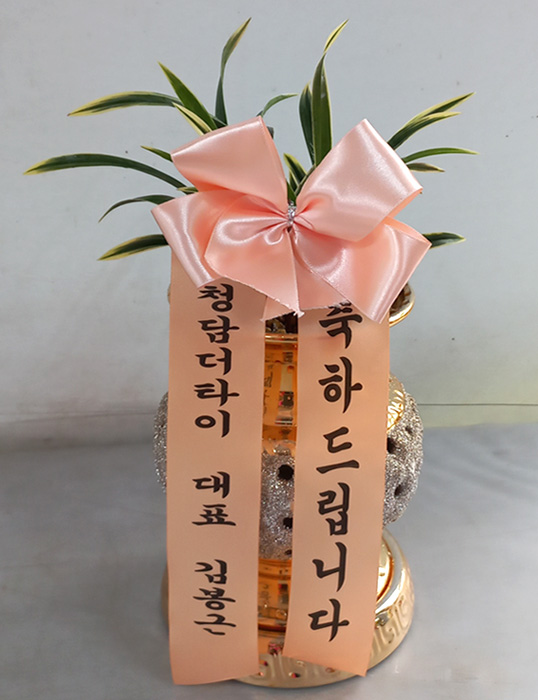 축하드립니다
청담더타이 대표 김봉근